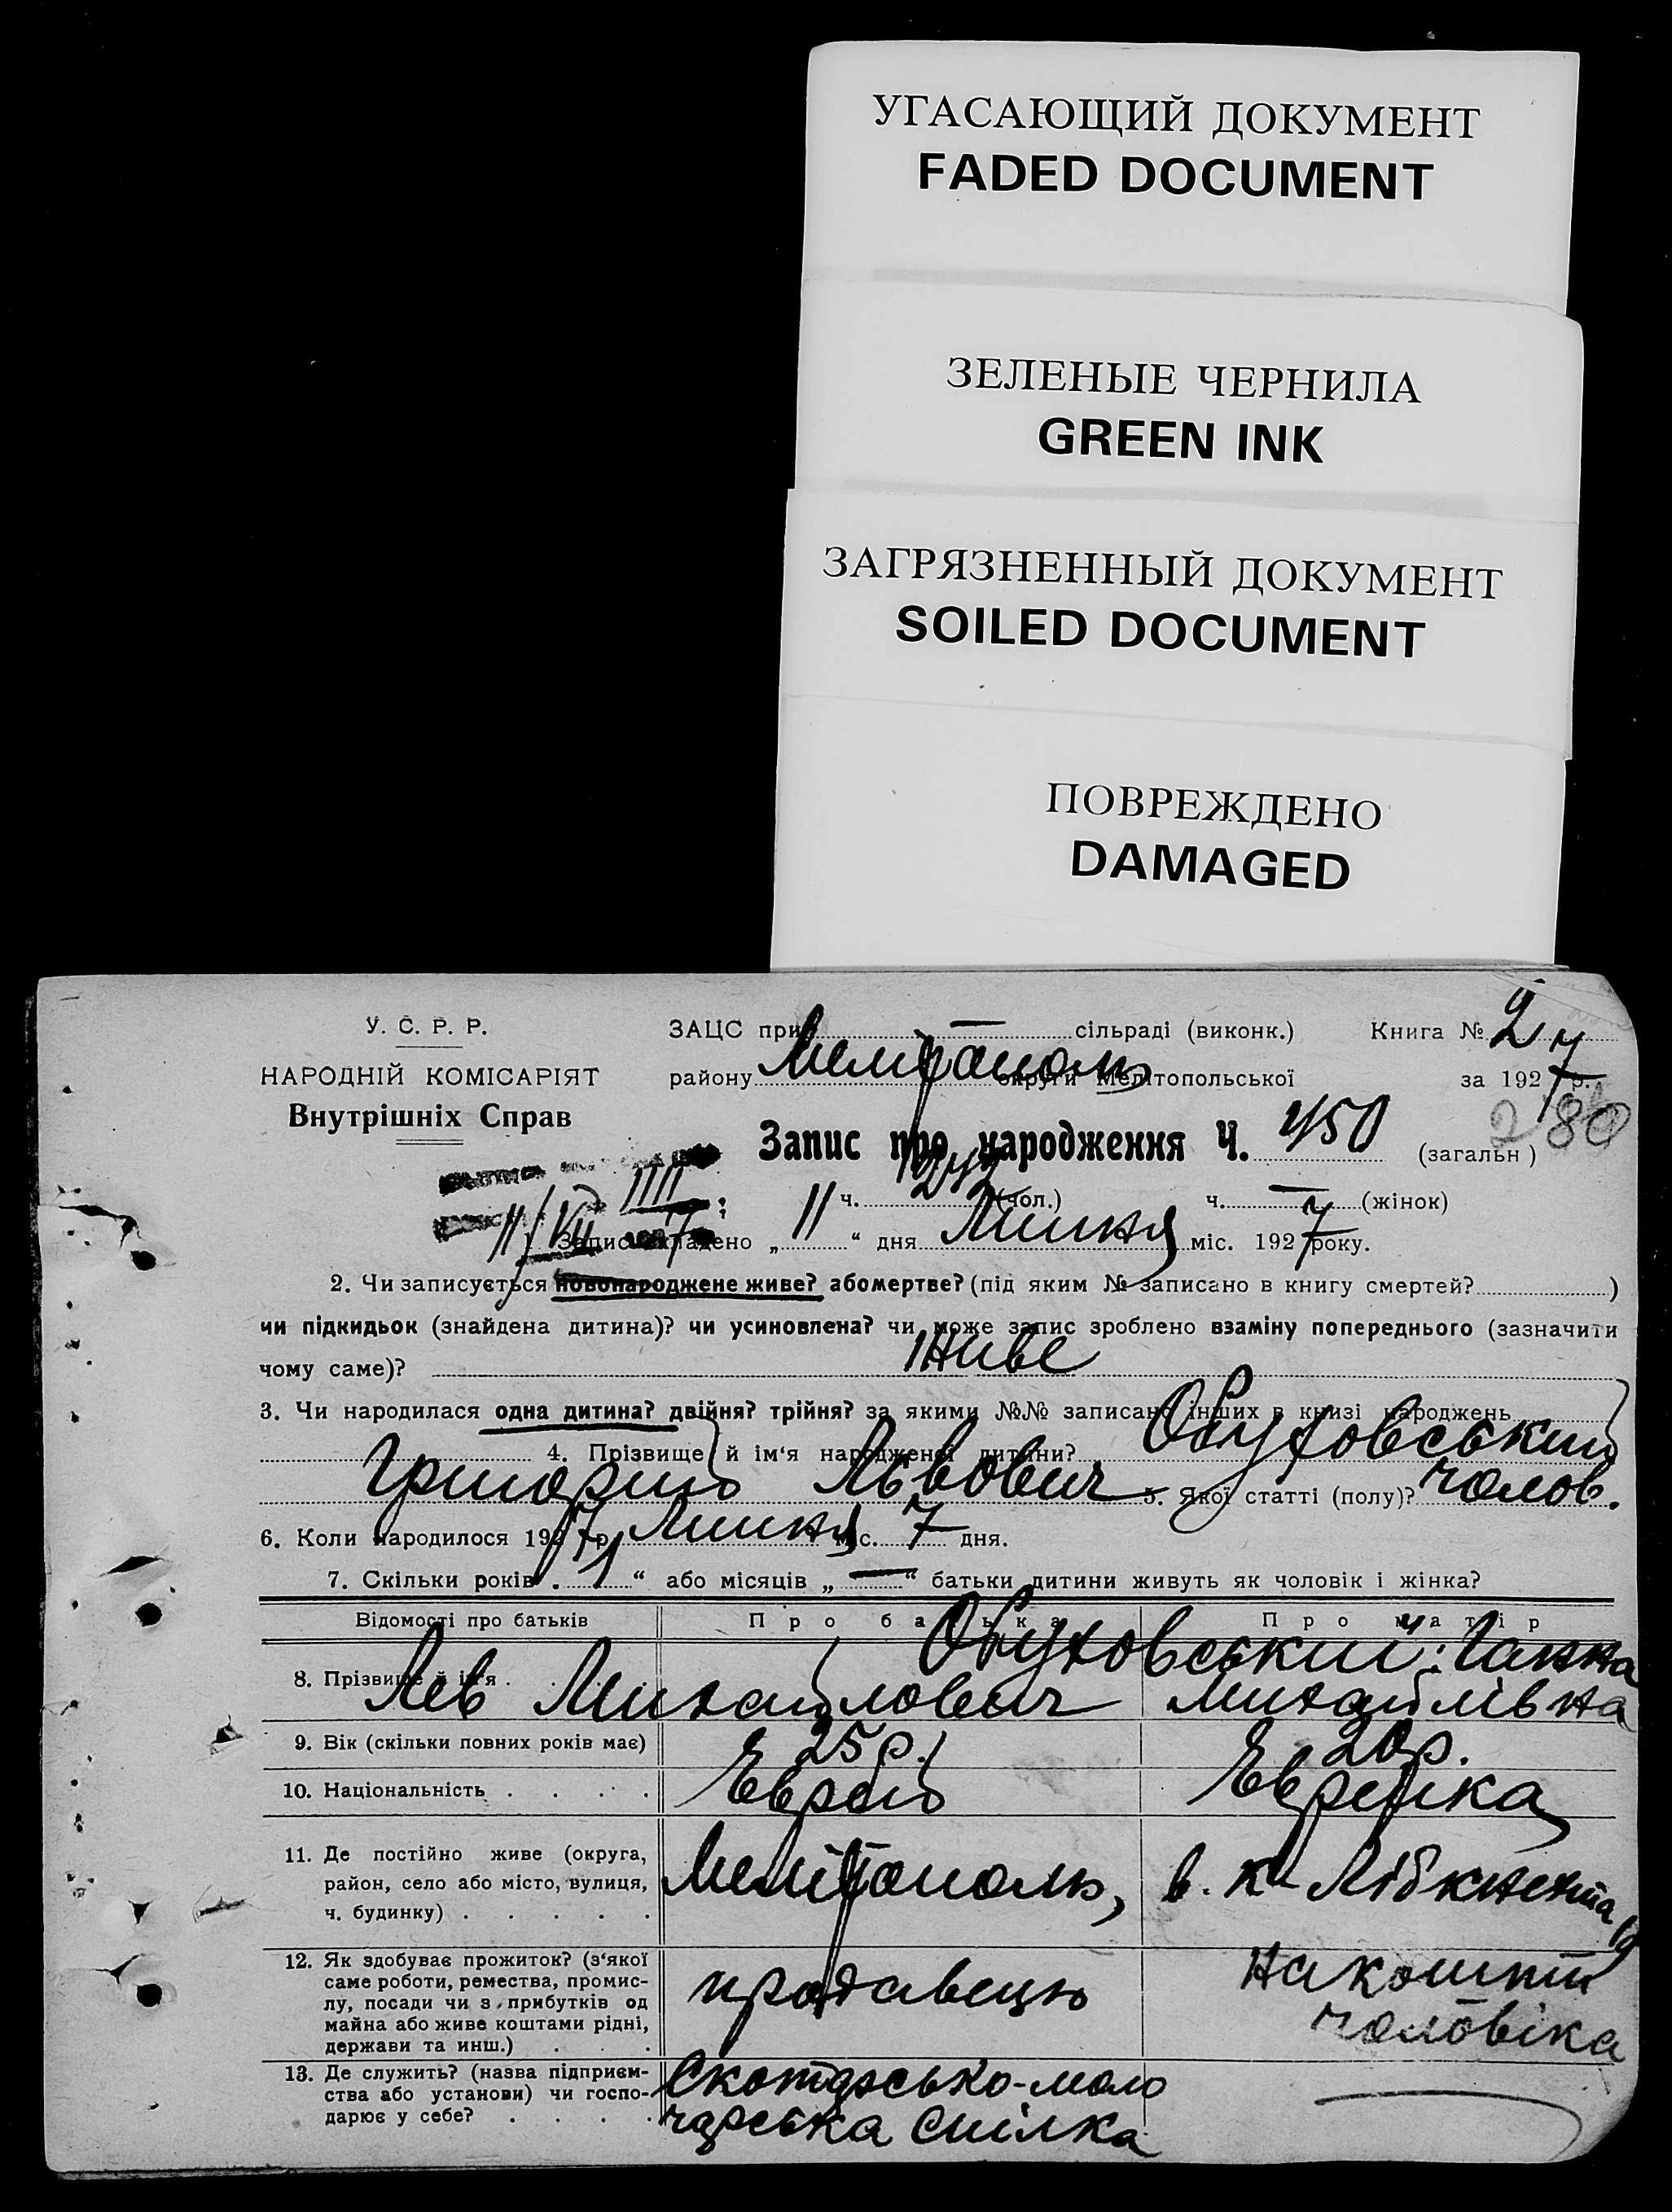 УГАСАЮЩИЙ ДОКУМЕНТ
FADED DOCUMENT
ЗЕЛЕНЫЕ ЧЕРНИЛА
GREEN INK
ЗАГРЯЗНЕННЫЙ ДОКУМЕНТ
SOILED DOCUMENT
ПОВРЕЖДЕНО
DAMAGED
У. С. Р. Р.
НАРОДНІЙ КОМІСАРІЯТ
Внутрішніх Справ
ЗАЦС при — сільраді (виконк.) Книга № 2
району Мелітополь округи Мелітопольської за 1927 р.
280
Запис про народження Ч. 450 (загальн)
ч. 242 (чол.) ч. — (жінок)
11/VII 7
Запис складено „11“ дня Липня міс. 1927 року.
2. Чи записується новонароджене живе? або мертве? (під яким № записано в книгу смертей? )
чи підкидьок (знайдена дитина)? чи усиновлена? чи може запис зроблено взаміну попереднього (зазначити
чому саме)? Живе
3. Чи народилася одна дитина? двійня? трійня? за якими №№ записано інших в книзі народжень
4. Прізвище й ім'я народженої дитини? Обуховський
Григорій Львович 5. Якої статті (полу)? Чолов.
6. Коли народилося 1927 р. Липня міс. 7 дня.
7. Скільки років „1“ або місяців „—“ батьки дитини живуть як чоловік і жінка?
Відомості про батьків Про батька Про матір
8. Прізвище й ім'я . Обуховський Лев Михайлович Ганна Михайлівна
9. Вік (скільки повних років має) 25 р. 20 р.
10. Національність . . . . Еврей Еврейка
11. Де постійно живе (округа,
район, село або місто, вулиця,
ч. будинку) . . . . .
Мелітополь, в. К. Лібкнехта 19
12. Як здобуває прожиток? (з'якої
саме роботи, ремества, промис-
лу, посади чи з прибутків од
майна або живе коштами рідні,
держави та инш.) . . .
продавець
На кошти
чоловіка
13. Де служить? (назва підприєм-
ства або установи) чи госпо-
дарює у себе? . . . .
молочарська Спілка